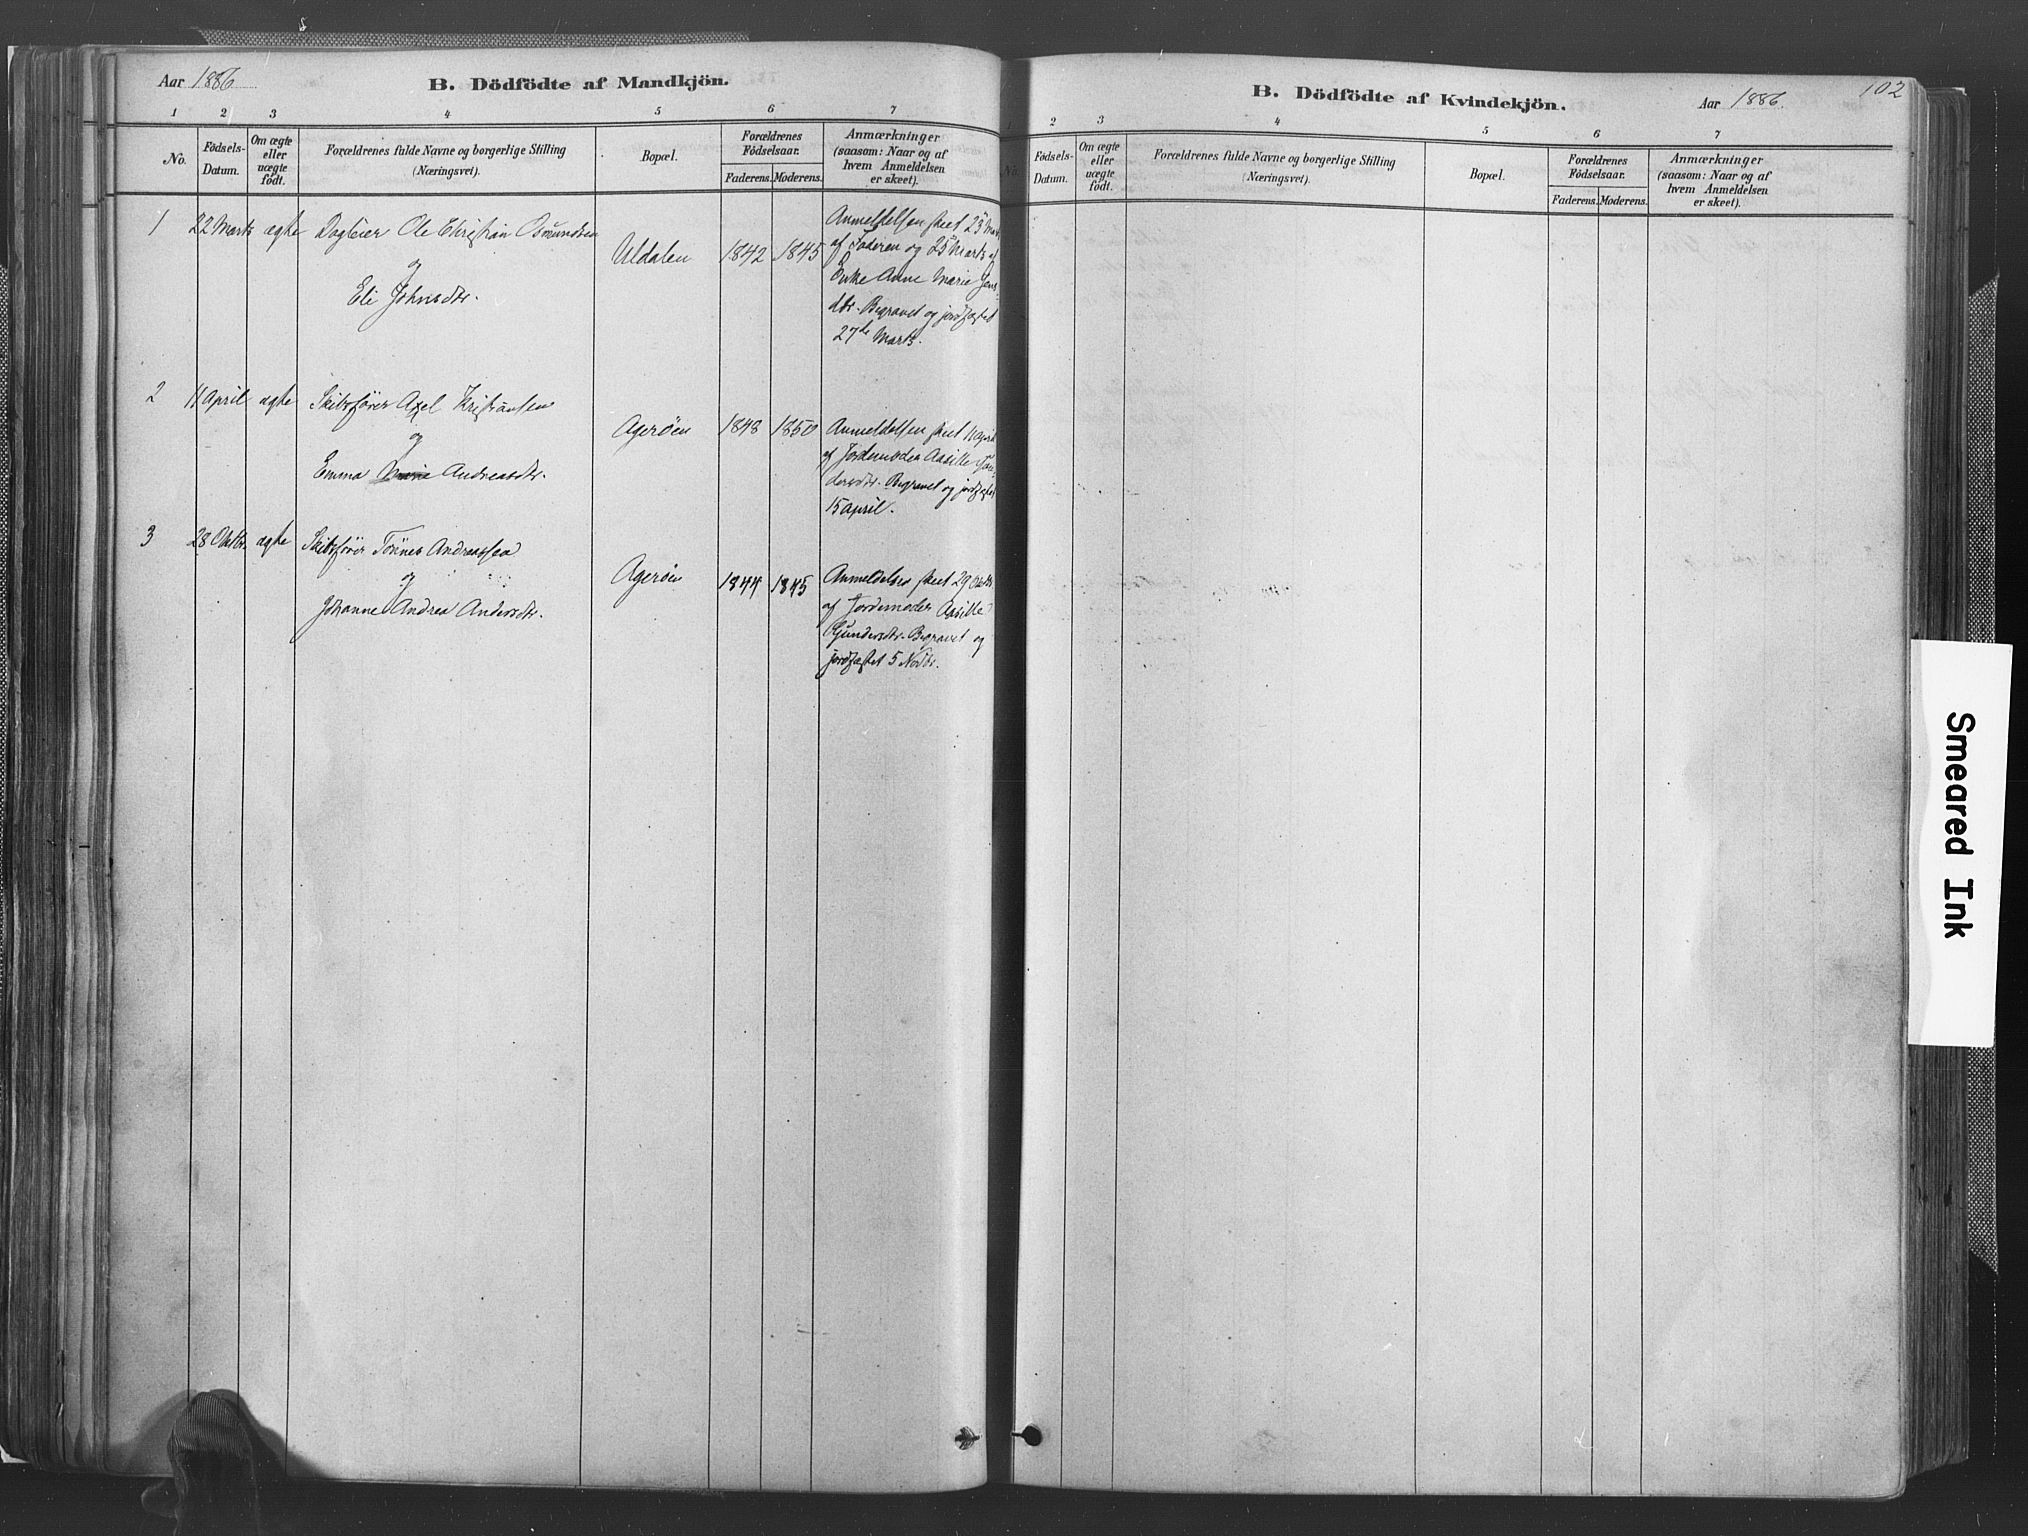 Aar 1886
B. Dödfödte af Mandkjön.
1 2 3 4 5 6 7
No.
Födsels-
Datum.
Om ægte
eller
uægte
födt.
Forældrenes fulde Navne og borgerlige Stilling
(Næringsvei).
Bopæl.
Forældrenes
Födselsaar.
Faderens. Moderens.
Anmærkninger
(saasom: Naar og af
hvem Anmeldelsen
er skeet).
1 22 Marts ægte Dagleier Ole Christian Osmundsen
og
Eli Johnsdtr.
Uldalen 1842 1845
Anmeldelsen skeet 23 Marts
af Faderen og 25 Marts af
Enke Anne Marie Jens-
dtr. Begravet og jordfæstet
27de Marts.
2 11 April ægte Skibsfører Axel Kristiansen
og
Emma Marie Andreasdtr.
Agerøen 1848 1850
Anmeldelsen skeet 11 April
af Jordemoder Aasille
dersdtr. Begravet og jordfæstet
15 April.
3 28 Oktbr. ægte Skibsfører Tønnes Andreassen
og
Johanne Andrea Andersdtr.
Agerøen 1844 1845
Anmeldelsen skeet 29 Oktbr
af Jordemoder Aasille
Gundersdtr. Begravet og
jordfæstet 5 Novbr.
B. Dödfödte af Kvindekjön.
Aar 1886.
102
1 2 3 4 5 6 7
No.
Födsels-
Datum.
Om ægte
eller
uægte
födt.
Forældrenes fulde Navne og borgerlige Stilling
(Næringsvei).
Bopæl.
Forældrenes
Födselsaar.
Faderens. Moderens.
Anmærkninger
(saasom: Naar og af
hvem Anmeldelsen
er skeet).
Smeared Ink